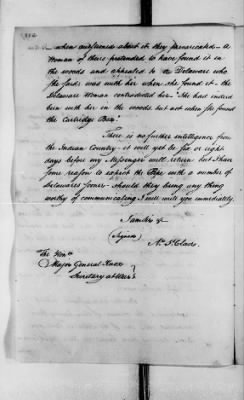 when questioned about it they prevaricated – A
Woman of theirs pretended to have found it in
the woods and appealed to a Delaware who
she said was with her when she found it – the
Delaware Woman contradicted her. She had indeed
been with her in the woods but not when she found
the Cartridge Box.
There is no further intelligence from
the Indian Country – it will yet be six or eight
days before my Messenger will return but I have
some reason to expect the Pipe with a number of
Delawares sooner – should they bring any thing
worthy of communicating I will write you immediately.
I am Sir &
(Signed)
Ar. St. Clair
The Honble
Major General Knox
Secretary at War